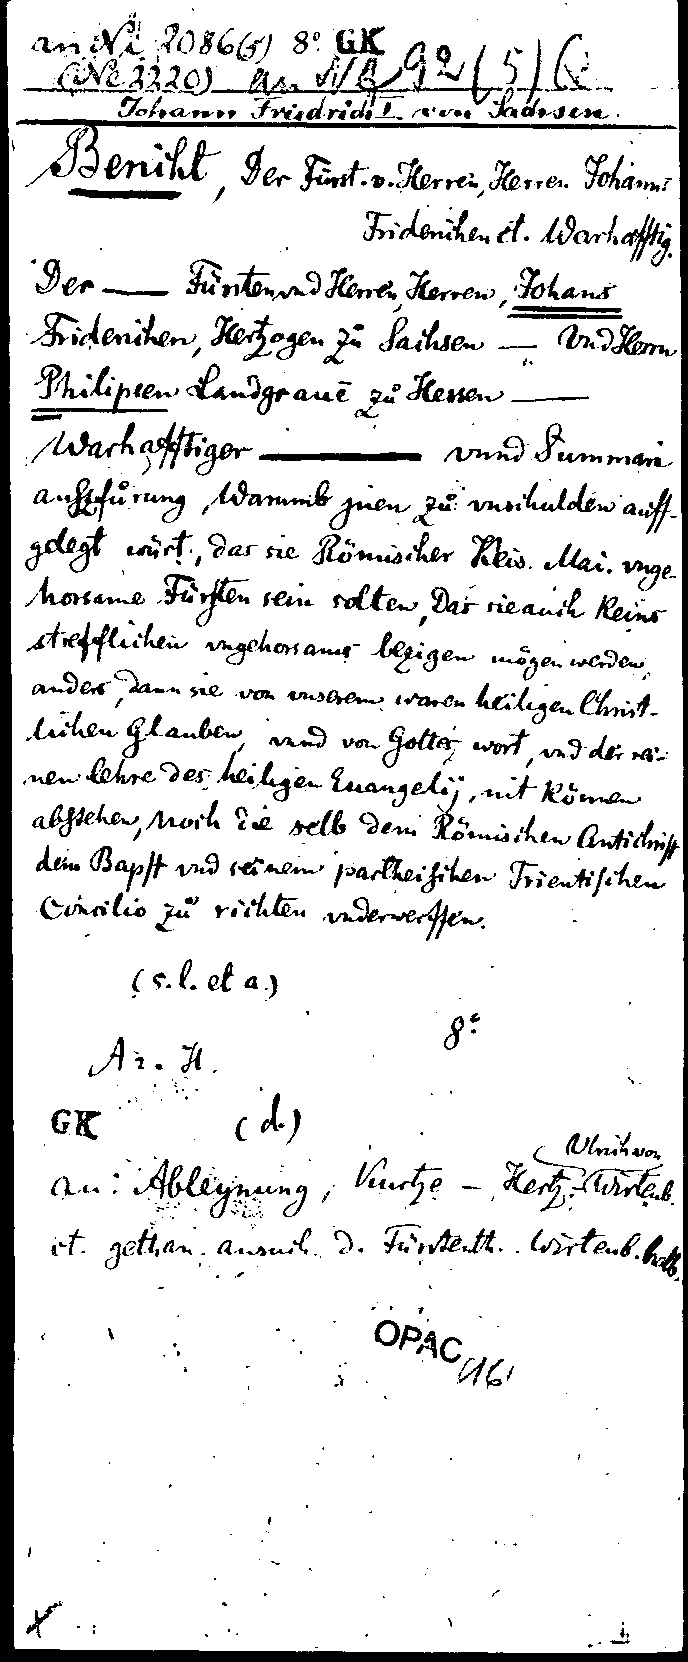 an Ni 2086(5) 8° GK
(Ne 2220) an NB 92 (5) 
Johann Friedrich I. von Sachsen.
Bericht, Der Fürst. v. Herren, Herren Johanns
Friderichen et. Warhafftig.
Der — Fürsten vnd Herren, Herren, Johans
Friderichen, Hertzogen zů Sachsen — Vnd Herrn
Philipsen Landgraūe zů Hessen —
Warhafftiger — vnnd Summari
außfůrung, Warumb jnen zů vnschulden auff-
gelegt würt, das sie Römischer Keis. Mai. vnge-
horsame Fürsten sein solten, Das sie auch Keins
strefflichen vngehorsams bezigen mögen werden,
anders, dann sie von vnserem waren heiligen Christ-
lichen Glauben, vnnd von Gottes wort, vnd der rei-
nen lehre des heiligen Euangelij, nit können
abstehen, Noch die selb dem Römischen Antichrist
dem Bapst vnd seinem partheischen Trientischen
Concilio zů richten vnderwerffen.
(s.l. et a.)
8°
A 2. H.
GK (d.)
Ulrich von
an: Ableynung, Kurtze — Hertz. Wirtenb.
et. gethan. ansuch. d. Fürstenth. Wirtenb. halb.
OPAC